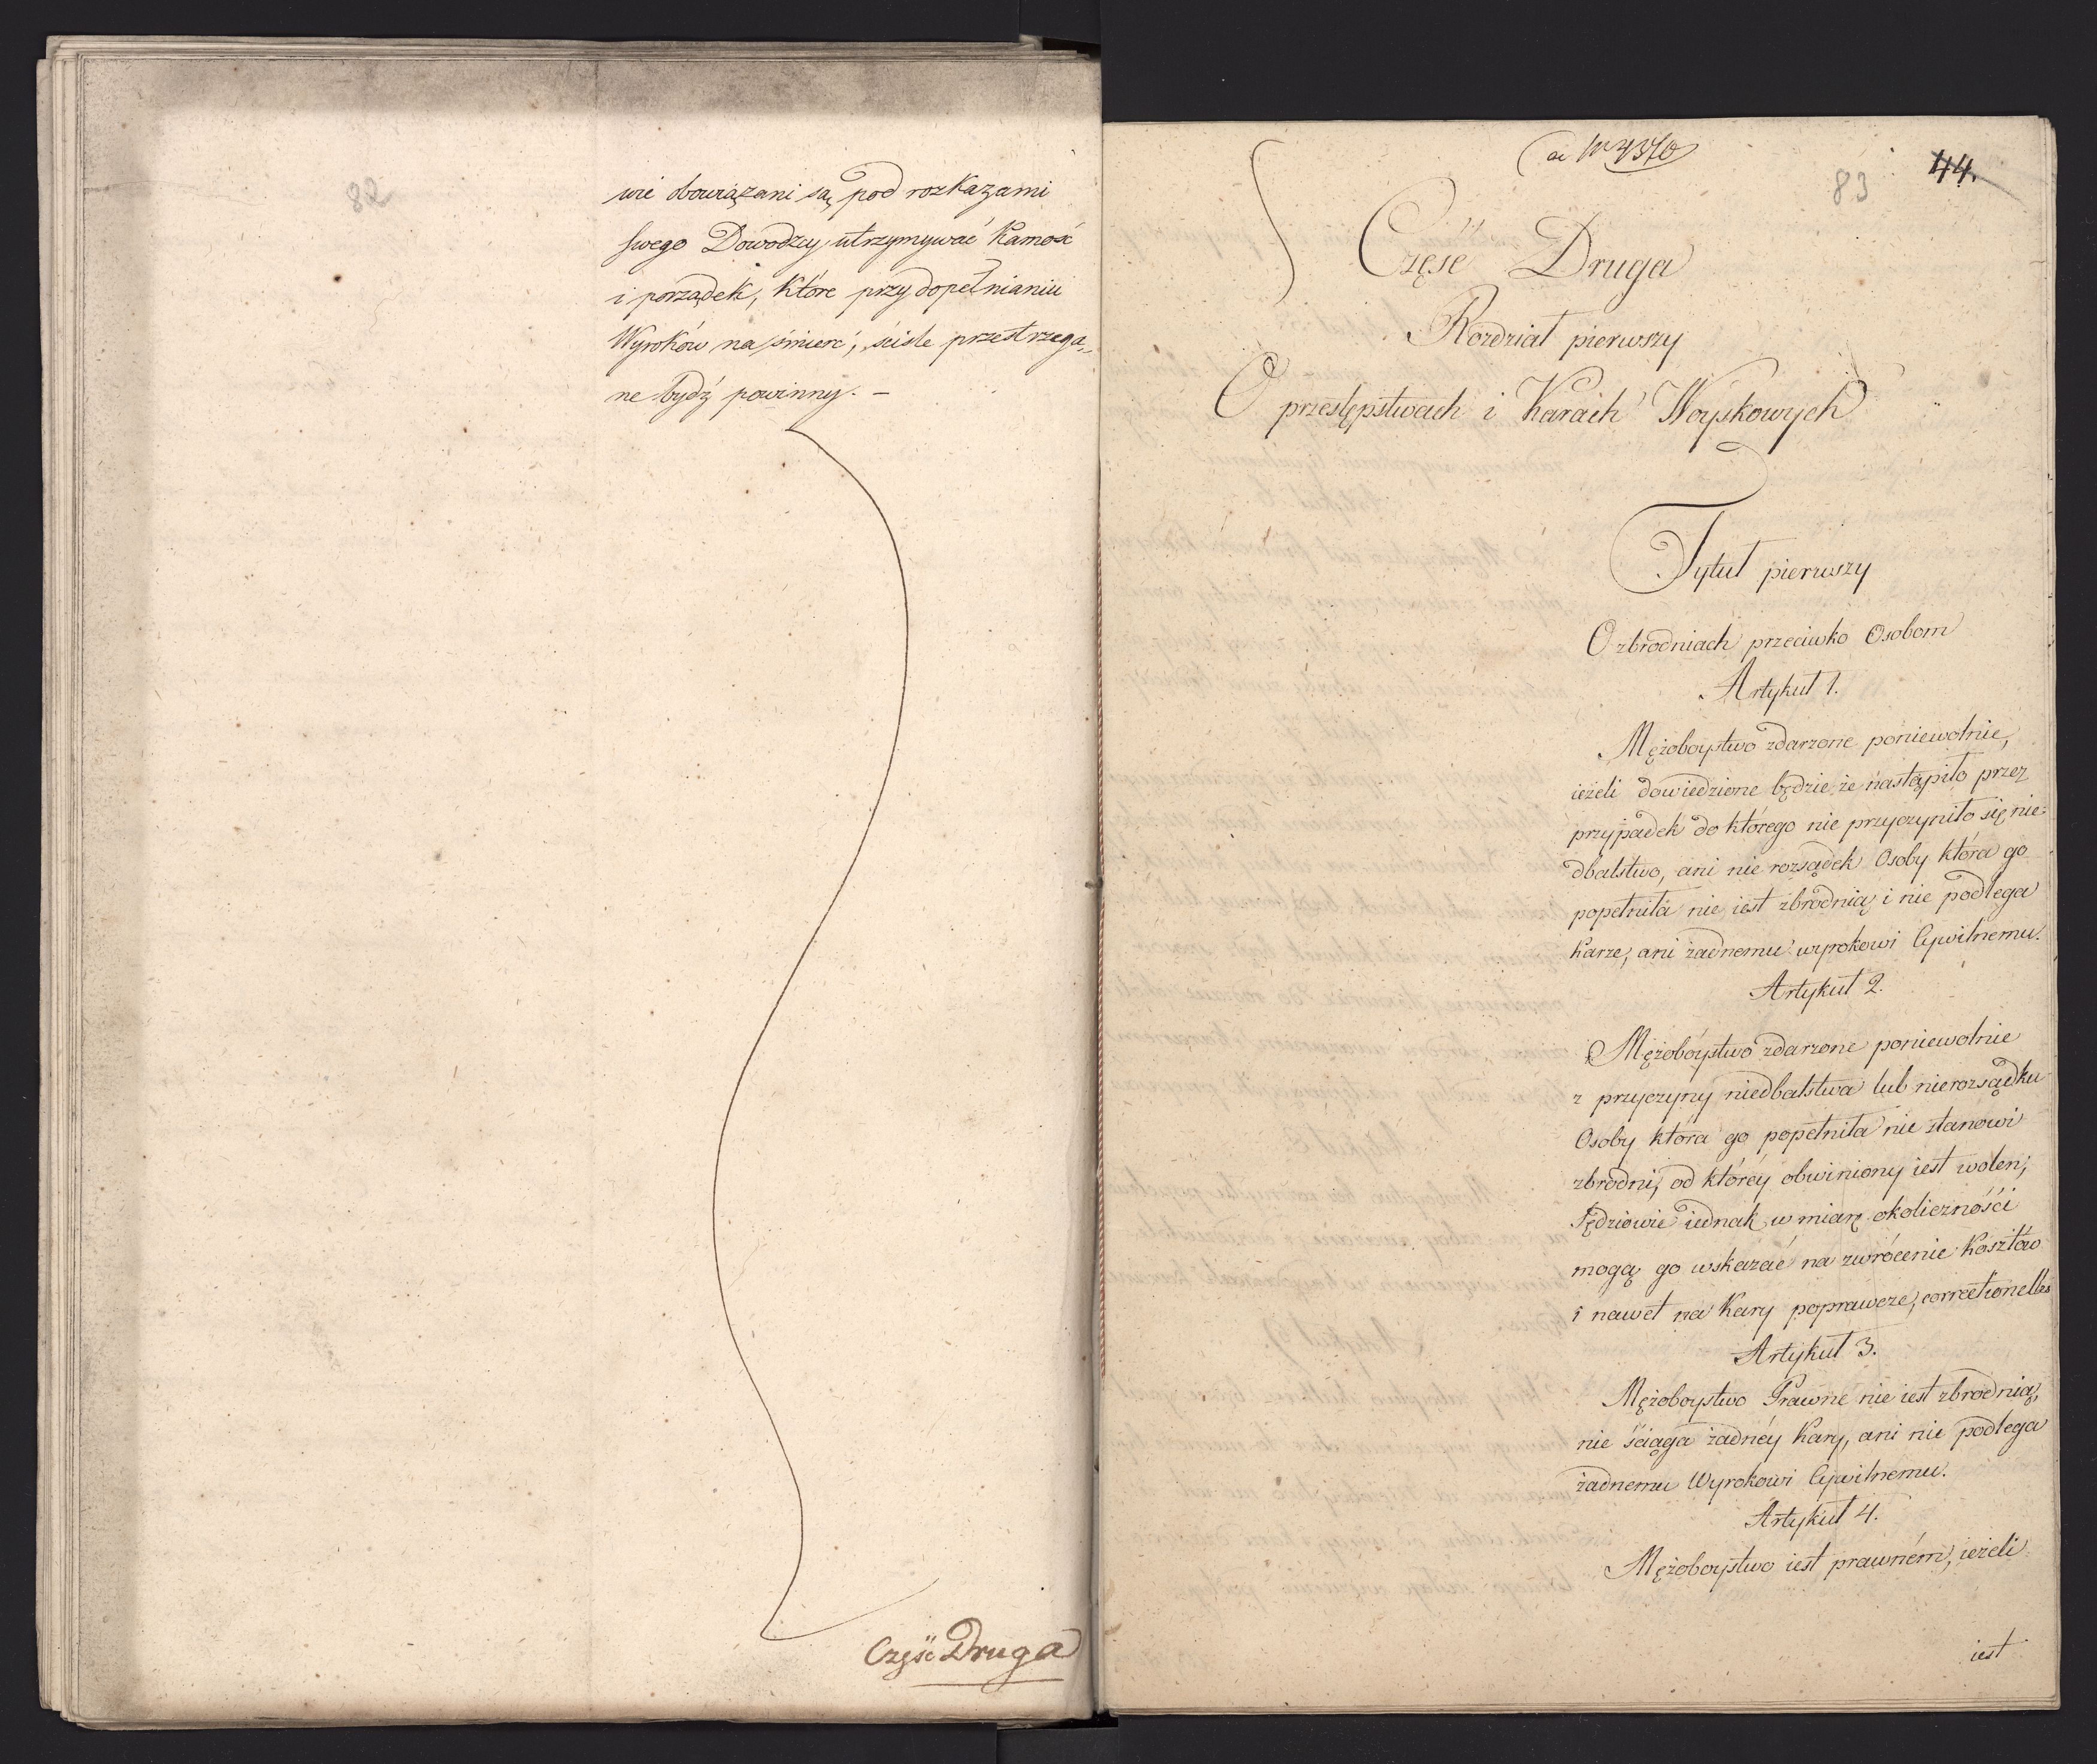 82
wie obowiązani są pod rozkazami
swego Dowodzcy utrzymywać Karność
i porządek, Które przy dopełnianiu
Wyroków na śmierć, ściśle przestrzega„
ne bydź powinny. –
Część Druga
44.
83
Część Druga
Rozdział pierwszy
O przestępstwach i Karach Woyskowych
Tytuł pierwszy
O zbrodniach przeciwko Osobom
Artykuł 1.
Mężoboystwo zdarzone poniewolnie,
ieżeli dowiedzione będzie że nastąpiło przez
przypadek do którego nie przyczyniło się nie=
dbalstwo, ani nie rozsądek Osoby która go
popełniła nie iest zbrodnią i nie podlega
karze, ani żadnemu wyrokowi Cywilnemu.
Artykuł 2.
Mężobóystwo zdarzone poniewolnie
z przyczyny niedbalstwa lub nierozsądku
Osoby która go popełniła nie stanowi
zbrodni, od któréy obwiniony iest wolen;
Sędziowie iednak w miarę okoliczności
mogą go wskazać na zwrócenie Kosztów
i nawet na Kary poprawcze, correctionelles
Artykuł 3.
Mężoboystwo Prawne nie iest zbrodnią,
nie ściąga żadnéy Kary, ani nie podlega
żadnemu Wyrokowi Cywilnemu.
Artykuł 4.
Mężoboystwo iest prawném, ieżeli
iest